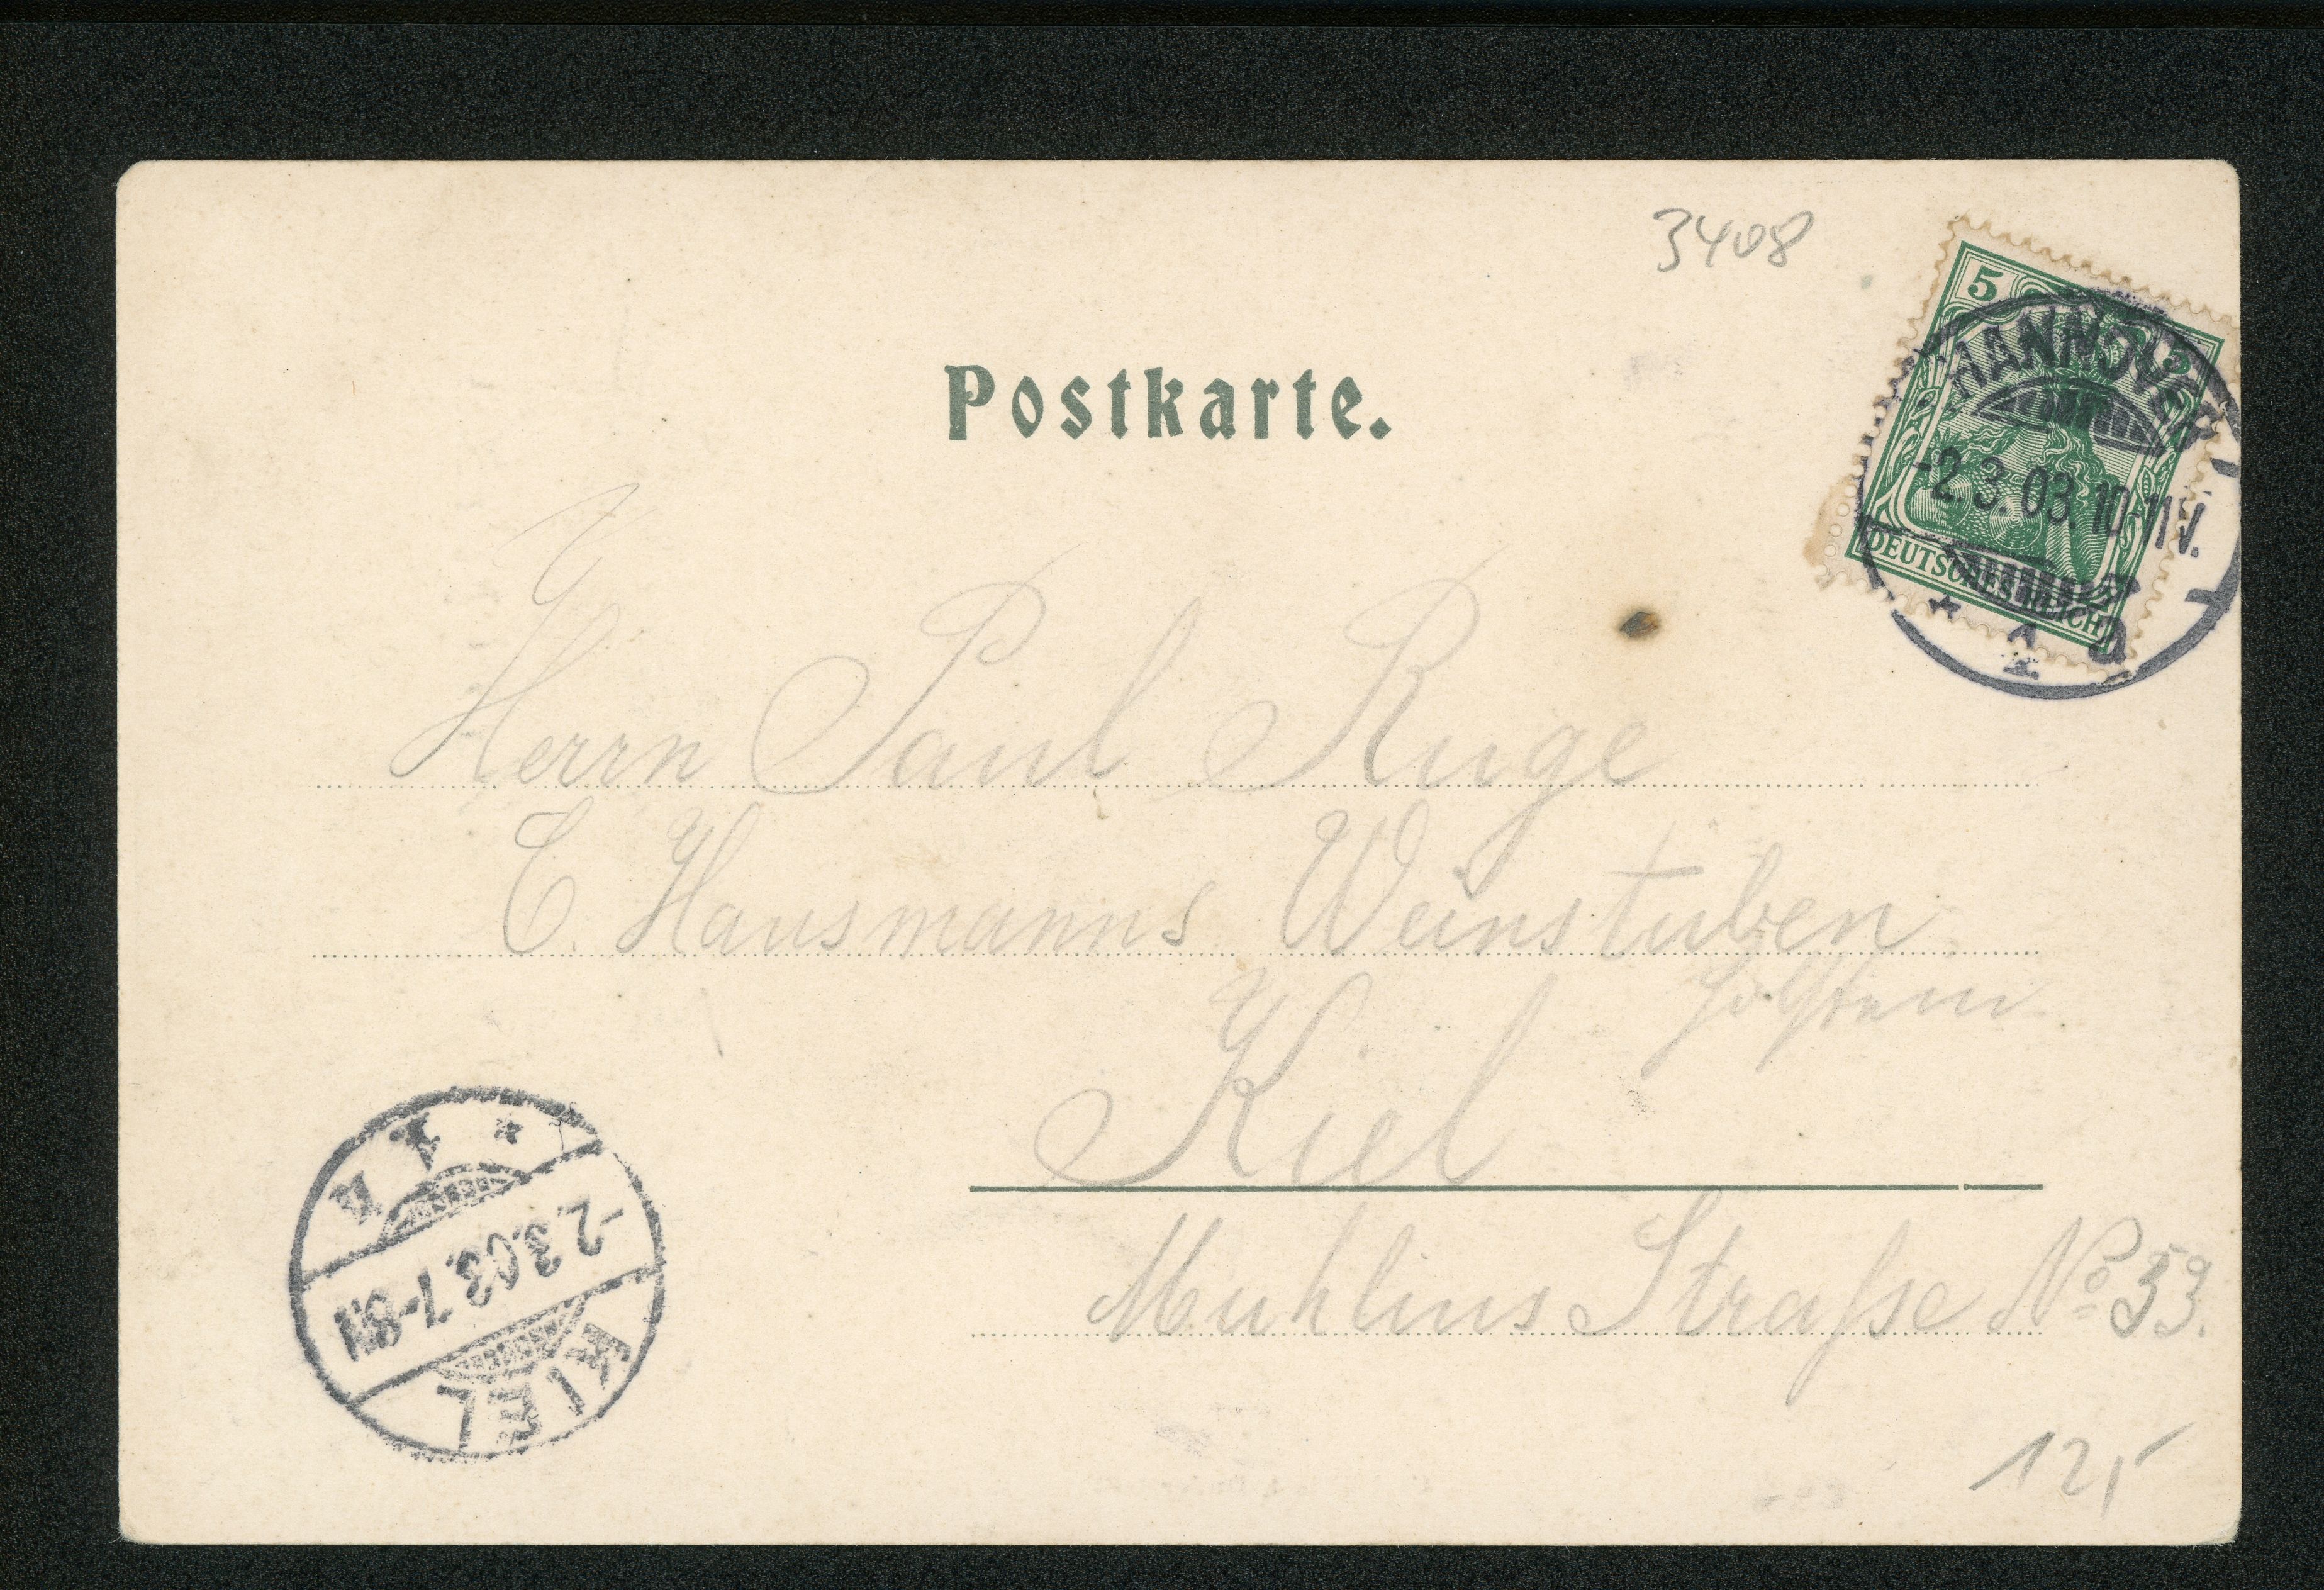 3408
5 5
HANNOVER
-2.3.03.10-11V.
* 1 a
DEUTSCHES REICH
Postkarte.
Herrn Paul Ruge
C. Hausmanns Weinstuben
Holstein
Kiel
Muhlins Straße No 53.
* 1 a
-2.3.03.7-8N
KIEL
12,-